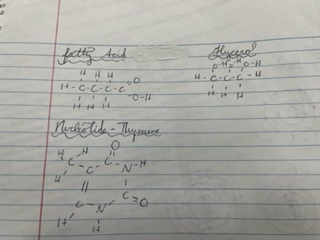 Fatty Acid
H H H
H - C - C - C - C = O
H H H O - H
Glycerol
O-H O-H O-H
H - C - C - C - H
H H H
Nucleotide - Thymine
O
H H
C C C N - H
H C
C = O
C N
H H